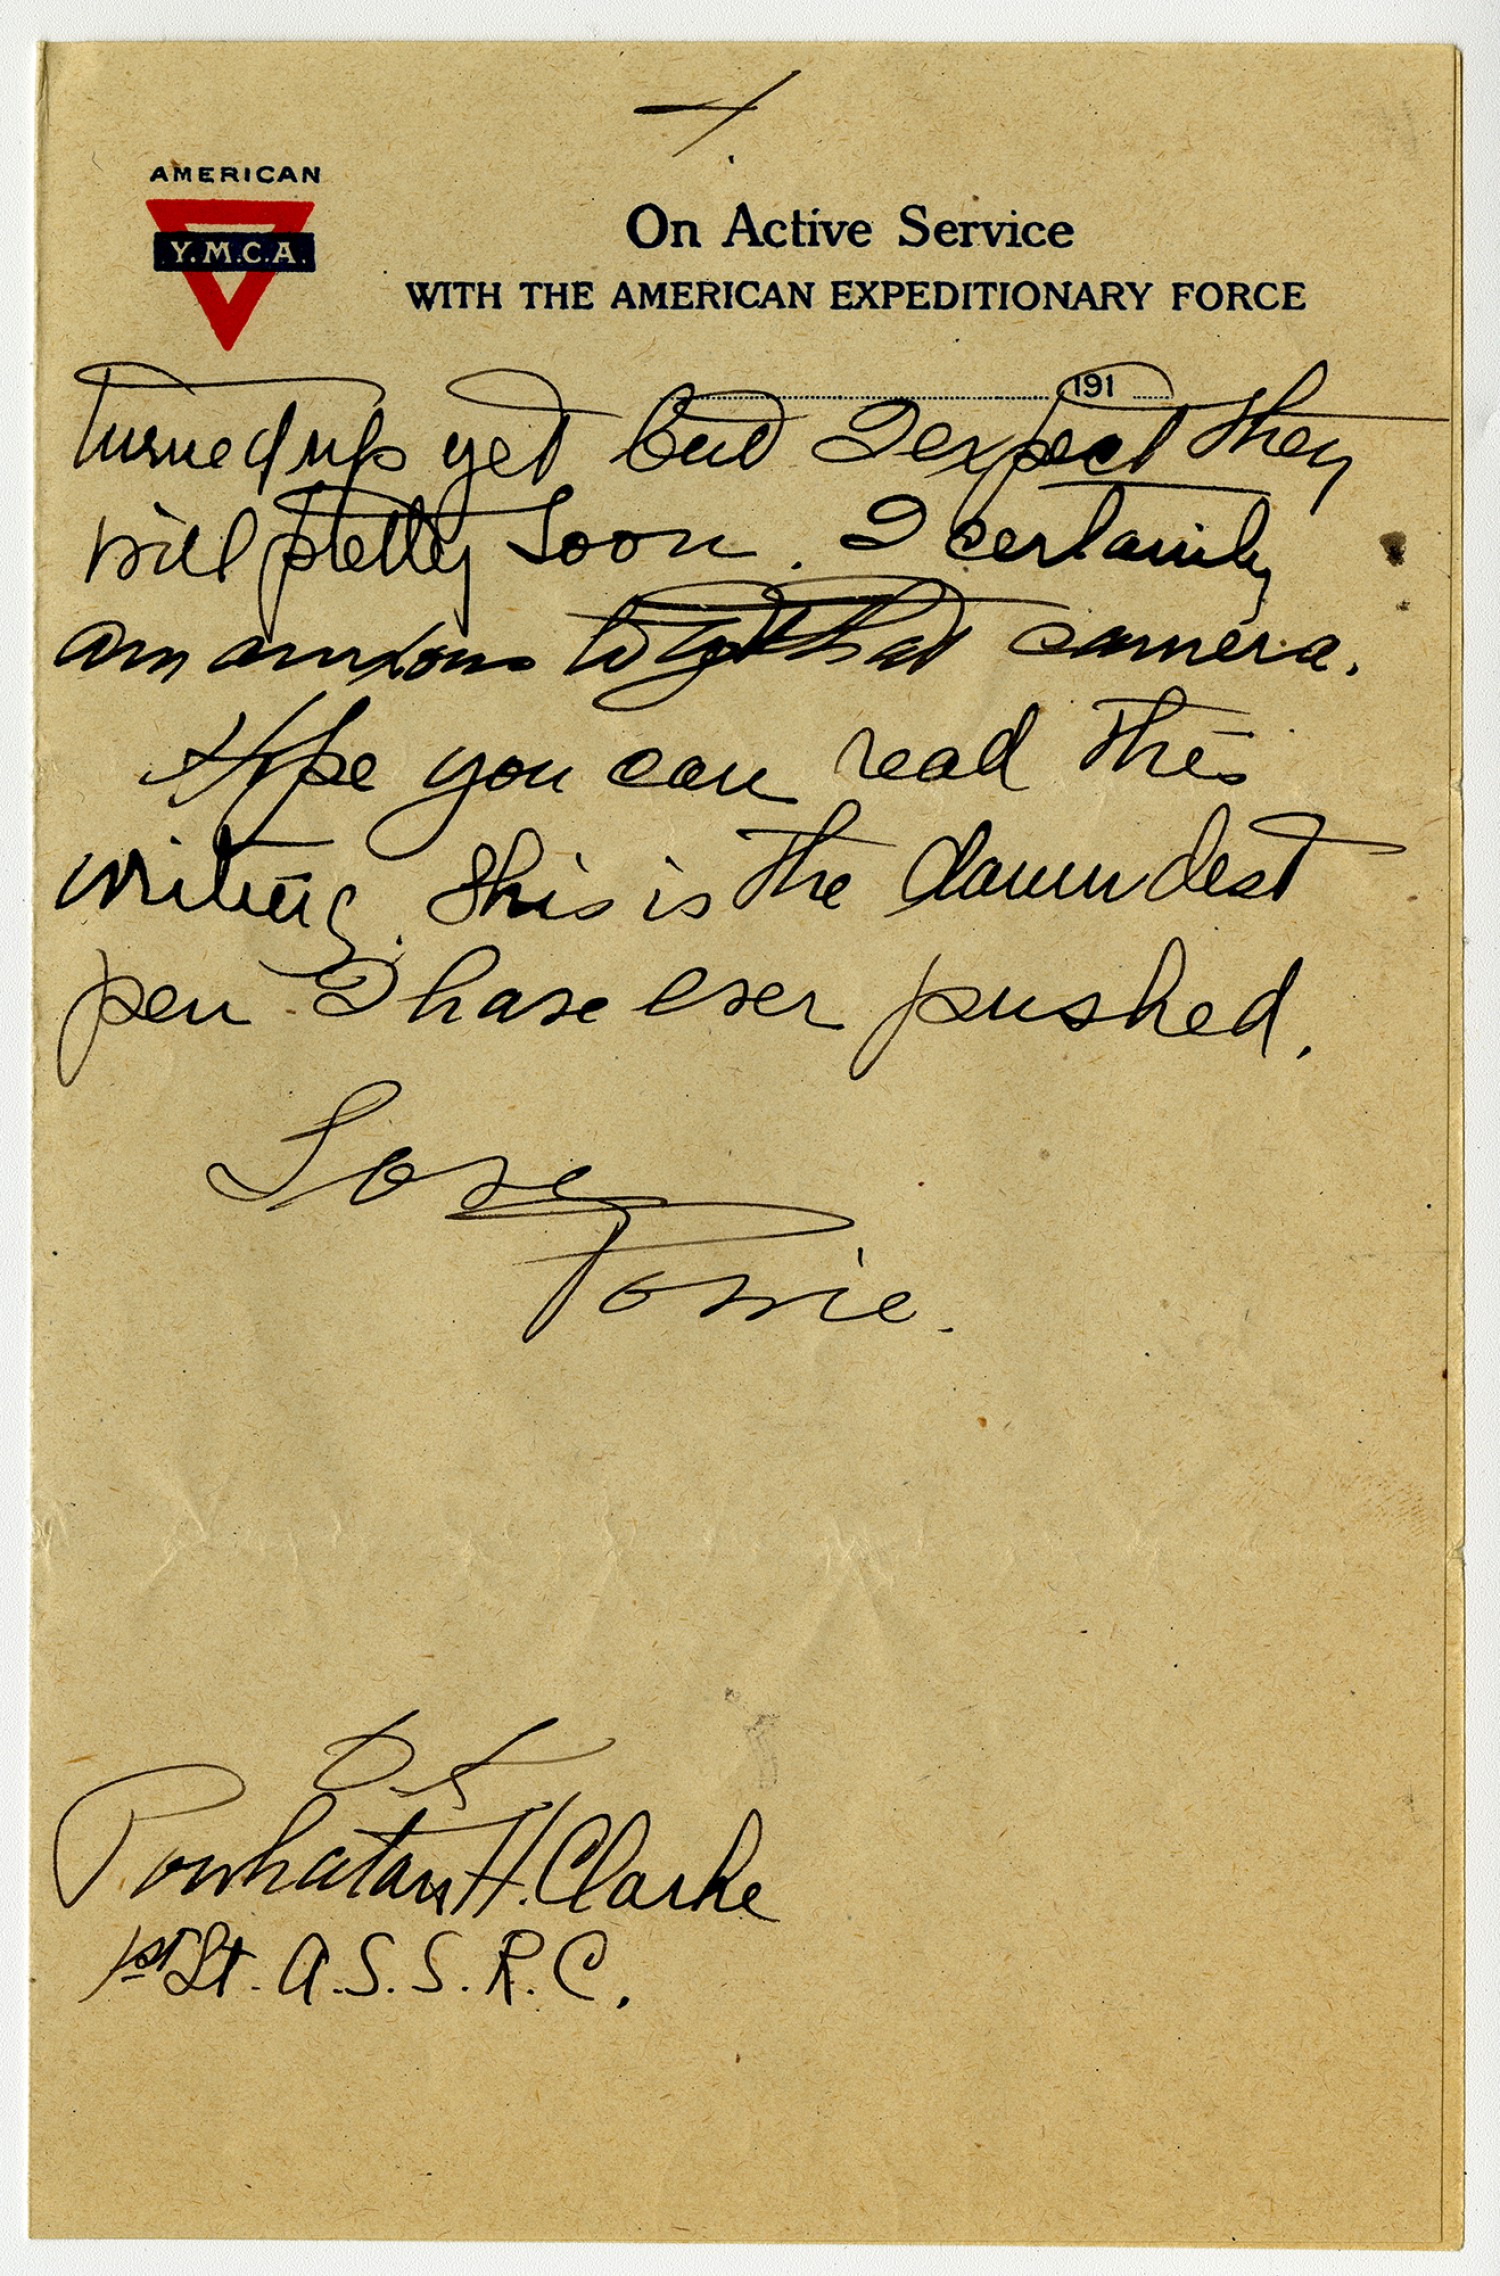 AMERICAN
Y.M.C.A.
On Active Service
WITH THE AMERICAN EXPEDITIONARY FORCE
191
turned up yet but I expect they
will pretty soon. I certainly
am anxious to get that camera.
Hope you can read this
writing. This is the damndest
pen I have ever pushed.
Love
Powie.
O.K.
Powhatan H. Clarke
1st Lt. A.S.S.R.C.